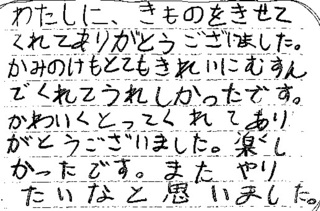 わたしに、きものをきせて
くれてありがとうございました。
かみのけもとてもきれいにむすん
でくれてうれしかったです。
かわいくとってくれてあり
がとうございました。楽し
かったです。またやり
たいなと思いました。